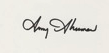 Amy Sherman